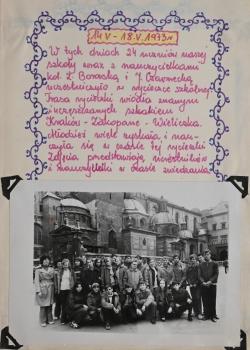 14 V - 18.V.1973r
W tych dniach 24 uczniów naszej
szkoły wraz z nauczycielkami
kol. Z. Borowską i J. Czarnecką
uczestniczyło w wycieczce szkolnej.
Trasa wycieczki wiodła znanym
i uczęszczanym szlakiem
Kraków - Zakopane - Wieliczka.
Młodzież wiele zyskała i nau-
czyła się w czasie tej wycieczki
Zdjęcia przedstawiają uczestników
i nauczycielki w czasie zwiedzania